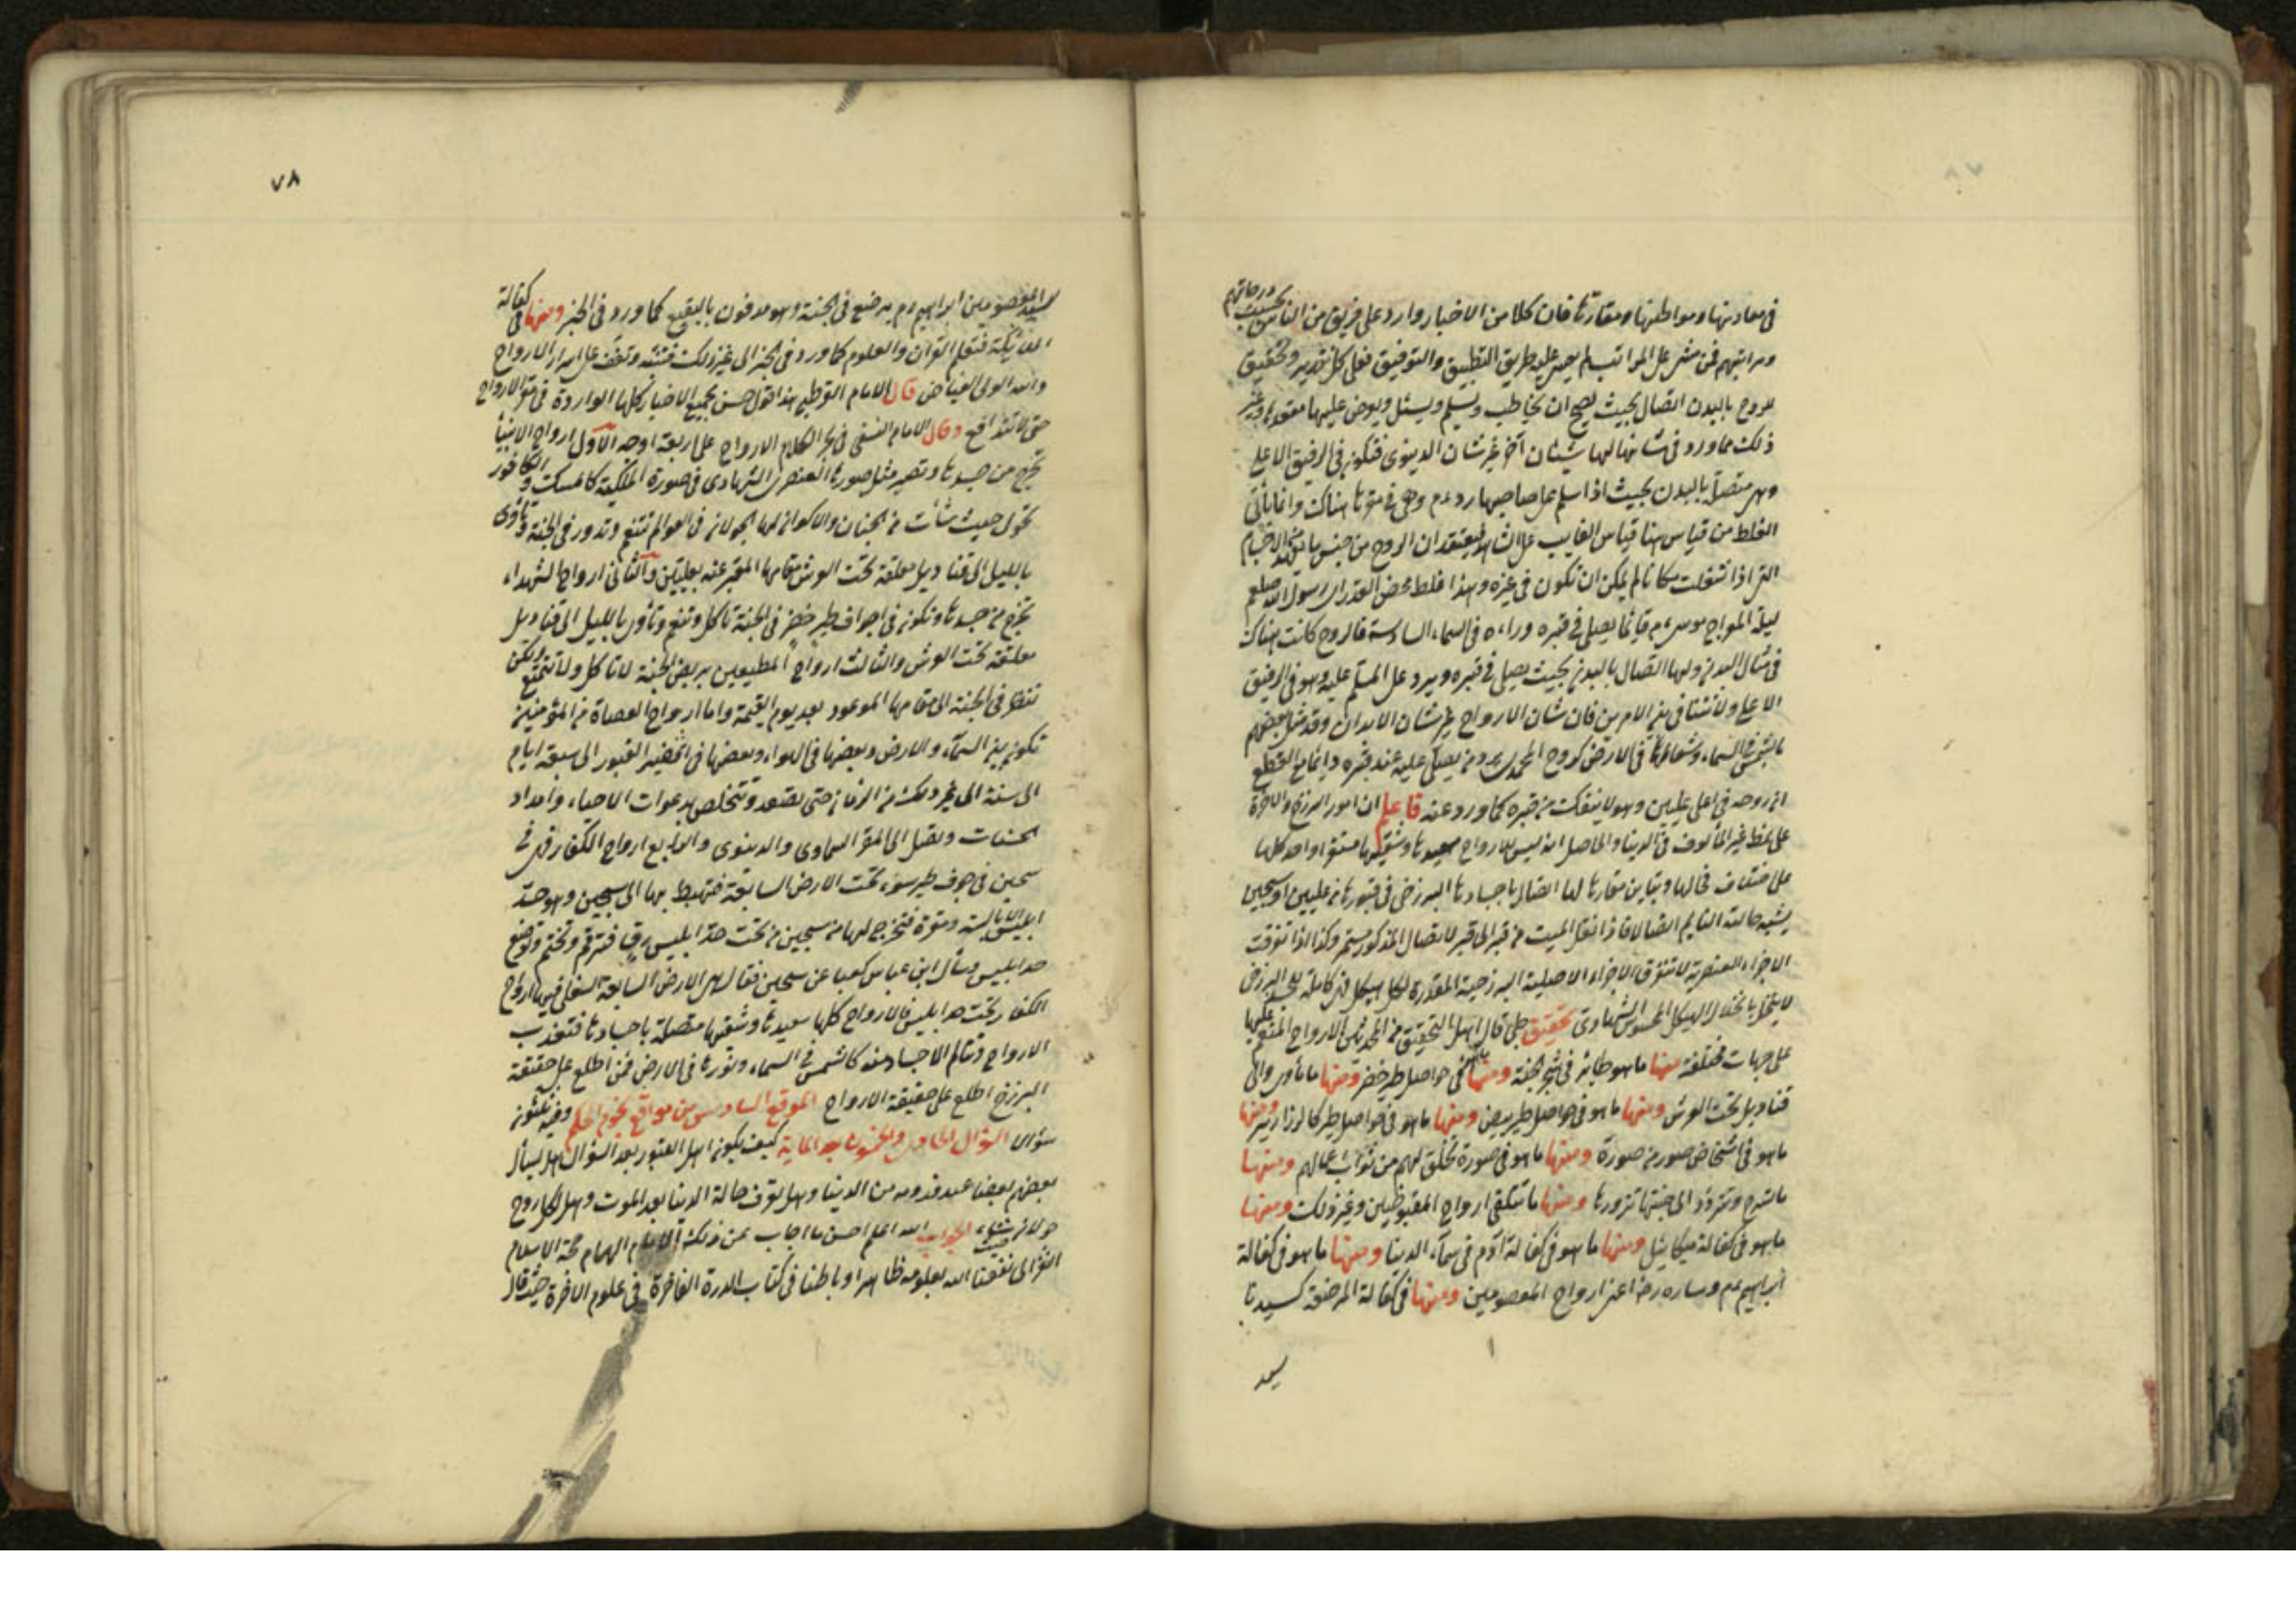 في معادنها ومواطنها ومقارّها فان كلا من الاخبار وارد على فريق من الناس بحسب درجاتهم
ومراتبهم فمن مشى على المراتب لم يعسر عليه طريق التطبيق والتوفيق فعلى كل تقدير وتحقيق
للروح بالبدن اتصال بحيث يصح ان يخاطب ويسلم ويسئل ويعرض عليها مقعدها وغير
ذلك مما ورد في شانها لها شان آخر غير شان الدنيوى فتكون في الرفيق الاعلى
وهى متصلة بالبدن بحيث اذا سلم على صاحبها رد وهى في مقرّها هناك وانما يأتي
الغلط من قياس هنا قياس الغايب على الشاهد فيعتقد ان الروح من جنس ما يعهد من الاجسام
التى اذا شغلت مكانا لم يمكن ان تكون في غيره وهذا غلط محض لقد راى رسول الله صلعم
ليلة المعراج موسى عم قايما يصلى في قبره وراءه في السماء السادسة فالروح كانت هناك
في مثال البدن ولها اتصال بالبدن بحيث يصلى في قبره ويرد على المسلم عليه وهو في الرفيق
الاعلى ولا تنافى بين الامرين فان شان الارواح غير شان الابدان وقد مثل بعضهم
بالشمس في السماء وشعاعها في الارض كروح المحمدى يرد من يصلى عليه عند قبره دائما مع القطع
ان روحه في اعلى عليين وهو لا ينفك من قبره كما ورد عنه فاعلم ان امور البرزخ والاخرة
على نمط غير المألوف في الدنيا والحاصل انه ليس للارواح سعيدها وشقيها مستقرا واحد كلها
على اختلاف محالها وتباين مقارها لها اتصال باجسادها البرزخى في قبورها من عليين او سجين
يشبه حالة النايم اتصالا فاذا نقل الميت من قبر الى قبر لاتصال المذكور مستمر وكذا اذا تفرقت
الاجزاء العنصرية لا تتفرق الاجزاء الاصلية البرزخية المقدرة لكل هيكل فهى كاملة للجسد البرزخى
لا يتخلل بانحلال الهيكل المحسوس الشهادى تحقيق جلى قال اهل التحقيق من المحدثين الارواح المنعم عليها
على جهات مختلفة منها ما هو طائر في شجر الجنة ومنها ما هو في حواصل طير خضر ومنها ما يأوى الى
قناديل تحت العرش ومنها ما هو في حواصل طير بيض ومنها ما هو في حواصل طير كالزرازير ومنها
ما هو في اشخاص صور من صورة ومنها ما هو في صورة تخلق لهم من ثواب اعمالهم ومنها
ما تسرح وتتردد الى جثتها تزورها ومنها ما تتلقى ارواح المقبوضين وغير ذلك ومنها
ما هو في كفالة ميكائيل ومنها ما هو في كفالة آدم في سماء الدنيا ومنها ما هو في كفالة
ابراهيم عم وساره رضا اعنى ارواح المعصومين ومنها في كفالة المرضعة كسيدنا
سيد
٧٨
سيد المعصومين ابراهيم عم يرضع في الجنة وهو مدفون بالبقيع كما ورد في الخبر ومنها في كفالة
الملائكة فتعلم القرآن والعلوم كما ورد في الخبر الى غير ذلك فتنبّه وتقف على اسرار الارواح
والله المولى الفياض قال الامام القرطبى هذا قول حسن يجمع الاخبار كلها الواردة في مقر الارواح
حتى لا تتدافع وقال الامام النسفى في بحر الكلام الارواح على اربعة اوجه الاول ارواح الانبيا
تخرج من جسدها وتصير مثل صورتها العنصرى الشهادى في صورة الملكية كالمسك والكافور
تجول حيث شأت من الجنان والاكوان لها الجولان في العوالم تتنعم وتدور في الجنة وتأوى
بالليل الى قناديل معلقة تحت العرش مقامها المعبّر عنه بعليّين والثانى ارواح الشهداء
تخرج من جسدها وتكون في اجواف طير خضر في الجنة تاكل وتنعم وتأوى بالليل الى قناديل
معلقة تحت العرش والثالث ارواح المطيعين بربض الجنة لا تاكل ولا تتمتع ولكن
تنظر في الجنة الى مقامها الموعود بعد يوم القيمة واما ارواح العصاة من المؤمنين
تكون بين السماء والارض وبعضها في الهواء وبعضها في افنية القبور الى سبعة ايام
الى سنة الى غير ذلك من الزمان حتى تصعد وتتخلص بدعوات الاحياء وامداد
الحسنات وتصل الى المقر السماوى والدنيوى والرابع ارواح الكفار فهى في
سجين في جوف طير سود تحت الارض السابعة فتهبط بها الى سجين وهو حدّ
ابليس الابالسة ومقره فتخرج لها من سجين من تحت حدّ ابليس رق فترقم وتختم وتوضع
حد ابليس وسأل ابن عباس كعبا عن سجين فقال هى الارض السابعة السفلى فيها ارواح
الكفار تحت حد ابليس فالارواح كلها سعيدها وشقيها متصلة باجسادها فتعذب
الارواح وتتألم الاجساد منه كالشمس في السماء ونورها في الارض فمن اطلع على حقيقة
البرزخ اطلع على حقيقة الارواح الموقع السادس من مواقع نجوم الحكم وفيه ثلثون
سؤال السؤال الحادى والخمسون بعد الماية كيف يكون اهل القبور بعد السؤال هل يسأل
بعضهم بعضا عند قدومه من الدنيا وهل يعرف حالة الدنيا بعد الموت وهل لكل روح
جولان حيث شاء الجواب الله اعلم احسن ما اجاب عن ذلك الامام الهمام حجة الاسلام
الغزالى نفعنا الله بعلومه ظاهرا وباطنا في كتاب الدرة الفاخرة في علوم الاخرة حيث قال